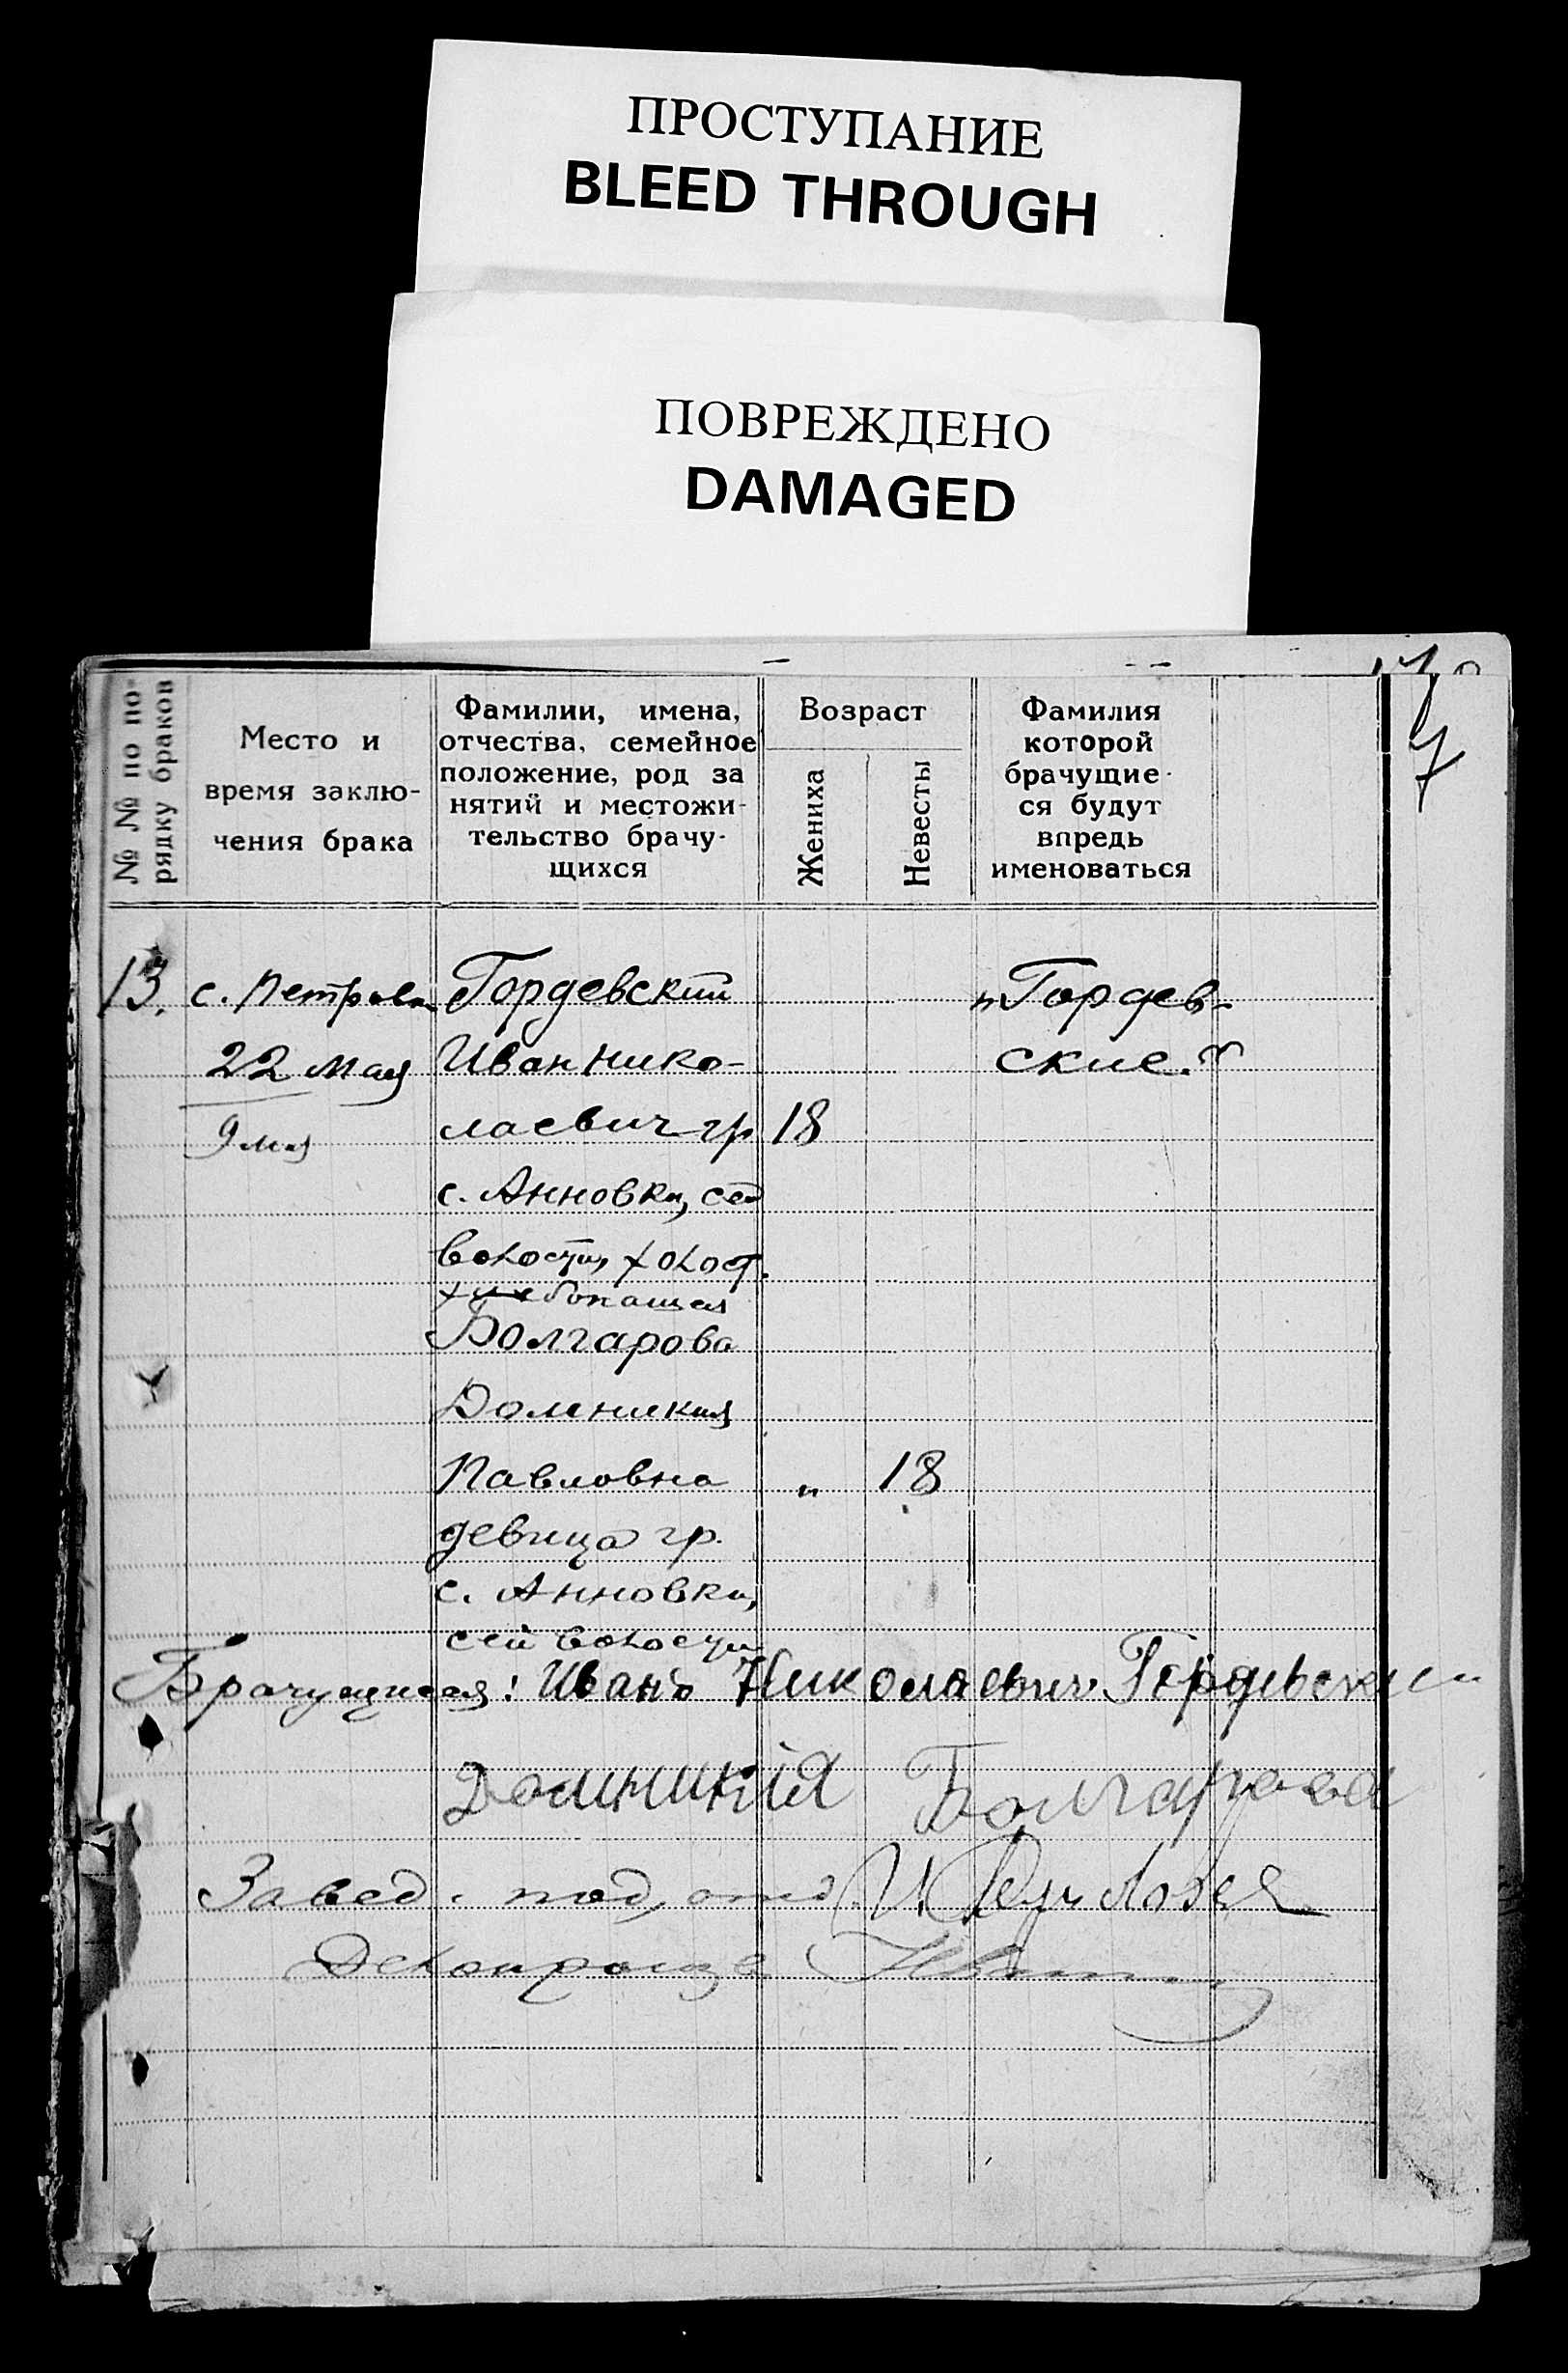 ПРОСТУПАНИЕ
BLEED THROUGH
ПОВРЕЖДЕНО
DAMAGED
7
№ № по по-
рядку браков
Место и
время заклю-
чения брака
Фамилии, имена,
отчества, семейное
положение, род за
нятий и местожи-
тельство брачу-
щихся
Возраст
Жениха
Невесты
Фамилия
которой
брачущие-
ся будут
впредь
именоваться
13.
с. Петровка
22 мая
9 мая
Гордевский
Иван Нико-
лаевич гр
с. Анновки, сей
волости, холост.
хлебопашец
18
Болгарова
Домникия
Павловна
девица гр.
с. Анновки,
сей волости
„ 18
„Гордев-
ские.“
Брачущиеся: Иванъ Николаевич Гордевский
Домникія Болгарова
Завед. под, отд. И